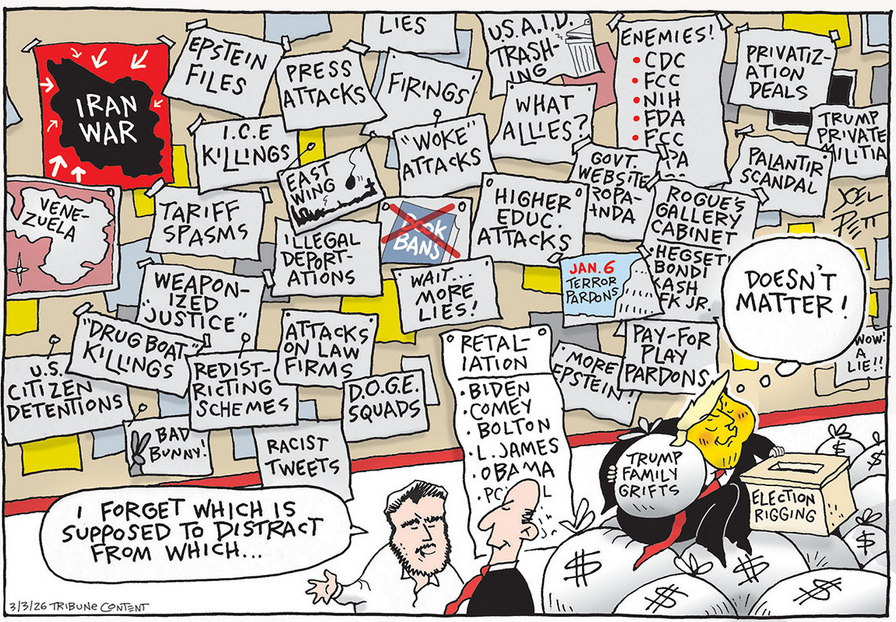 LIES
U.S.A.I.D.
TRASH-
ING
ENEMIES!
• CDC
• FCC
• NIH
• FDA
• FCC
PA
PRIVATIZ-
ATION
DEALS
EPSTEIN
FILES
PRESS
ATTACKS
FIRINGS
WHAT
ALLIES?
TRUMP
PRIVATE
MILITIA
IRAN
WAR
I.C.E
KILLINGS
"WOKE"
ATTACKS
GOVT.
WEBSITE
ROPA-
NDA
PALANTIR
SCANDAL
JOEL
PETT
VENE-
ZUELA
TARIFF
SPASMS
EAST
WING
BOOK
BANS
HIGHER
EDUC.
ATTACKS
ROGUE'S
GALLERY
CABINET
HEGSET
BONDI
KASH
FK JR.
ILLEGAL
DEPORT-
ATIONS
WAIT...
MORE
LIES!
JAN. 6
TERROR
PARDONS
DOESN'T
MATTER!
WEAPON-
IZED
"JUSTICE"
"DRUG BOAT"
KILLINGS
ATTACKS
ON LAW
FIRMS
RETAL-
IATION
• BIDEN
• COMEY
• BOLTON
• L. JAMES
• OBAMA
"MORE
EPSTEIN!
PAY-FOR
PLAY
PARDONS
WOW!
A
LIE!!
U.S.
CITIZEN
DETENTIONS
REDIST-
RICTING
SCHEMES
D.O.G.E.
SQUADS
BAD
BUNNY!
RACIST
TWEETS
TRUMP
FAMILY
GRIFTS
ELECTION
RIGGING
I FORGET WHICH IS
SUPPOSED TO DISTRACT
FROM WHICH...
$
$
$
$
$
$
3/3/26 TRIBUNE CONTENT